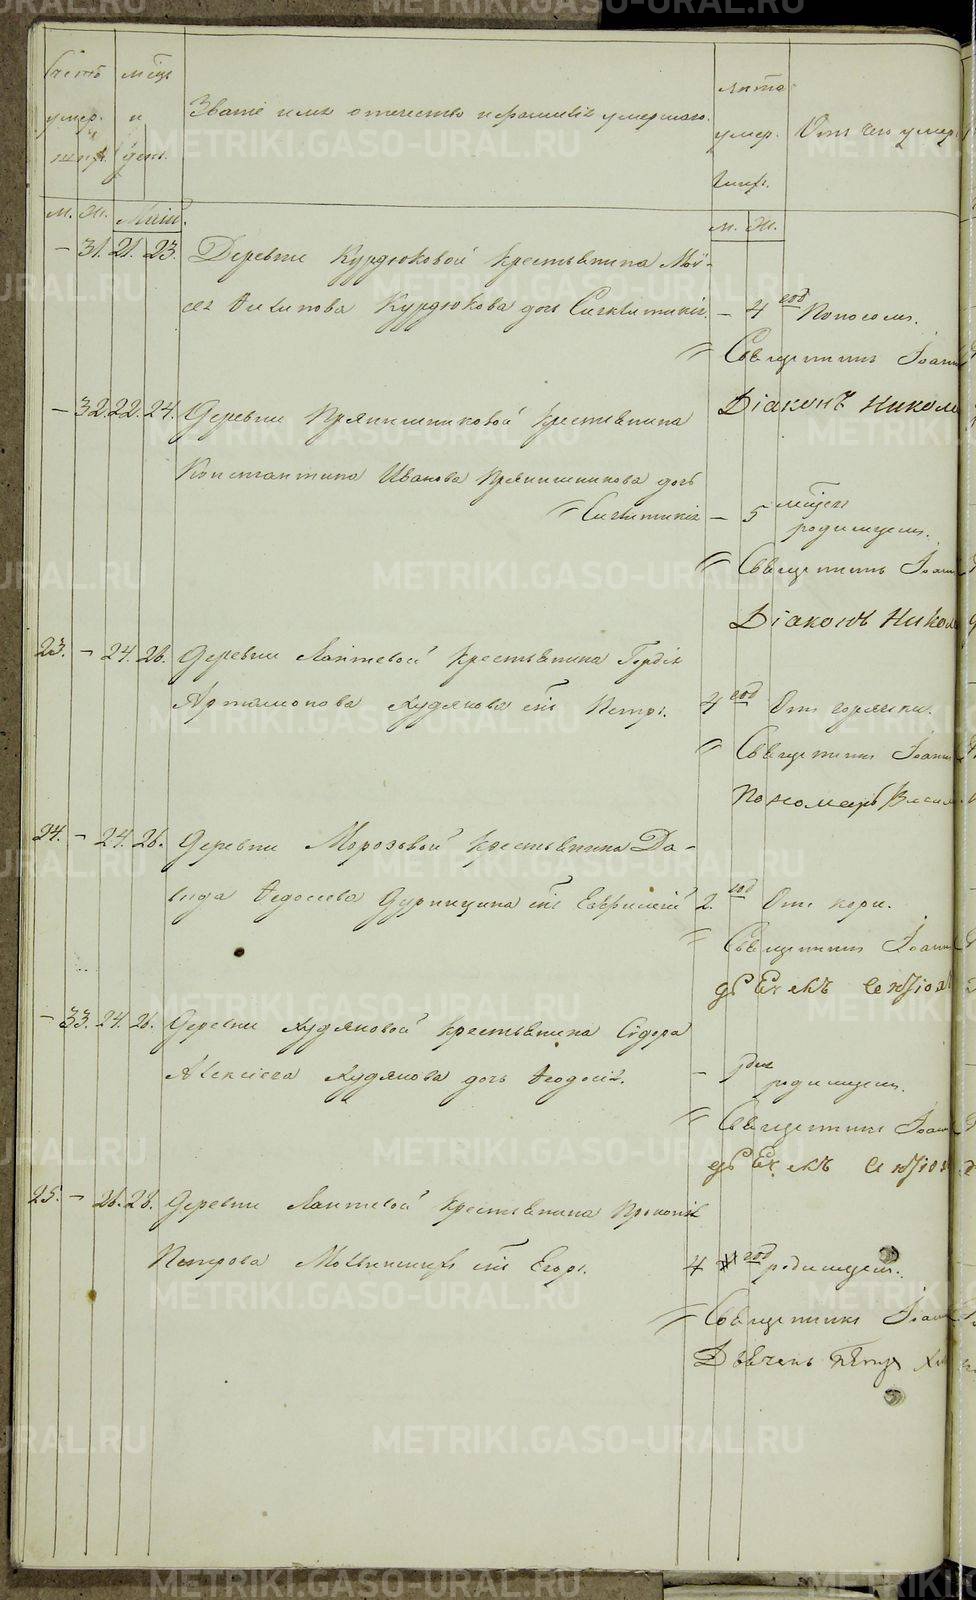 Счетъ умер. м. ж.
мѣсяц и день.
Званіе имя отечество и фамилія умершаго.
лѣта умер.
Отъ чего умер
м. ж. Маій. м. ж.
— 31. 21. 23. Деревни Курдюковой крестьянина Мои-
сея Антипова Курдюкова дочь Сигклитикія. — 4 год Поносомъ.
Священникъ Іоанн
Діаконъ Никола
— 32. 22. 24. Деревни Прянишниковой крестьянина
Константина Иванова Прянишникова дочь
Сигклитикія — 5 месяц
родимцемъ.
Священникъ Іоанн
Діаконъ Никол
23. — 24. 26. Деревни Лаптевой крестьянина Гордія
Артамонова Худякова сын Петръ. 4 год От горячки.
Священникъ Іоанн
Пономарь Васил
24. — 24. 26. Деревни Морозовой крестьянина Да-
вида Федосеева Дурницина сын Евфимій 2. год Отъ кори.
Священникъ Іоанн
— 33. 24. 26. Деревни Худяковой крестьянина Сидора
Алексіева Худякова дочь Феодосія. —
родимцемъ.
Священникъ Іоанн
25. — 26. 28. Деревни Лаптевой крестьянина Прокопія
Петрова сын Егоръ. 4 год родимцемъ.
Священникъ Іоанн
METRIKI.GASO-URAL.RU